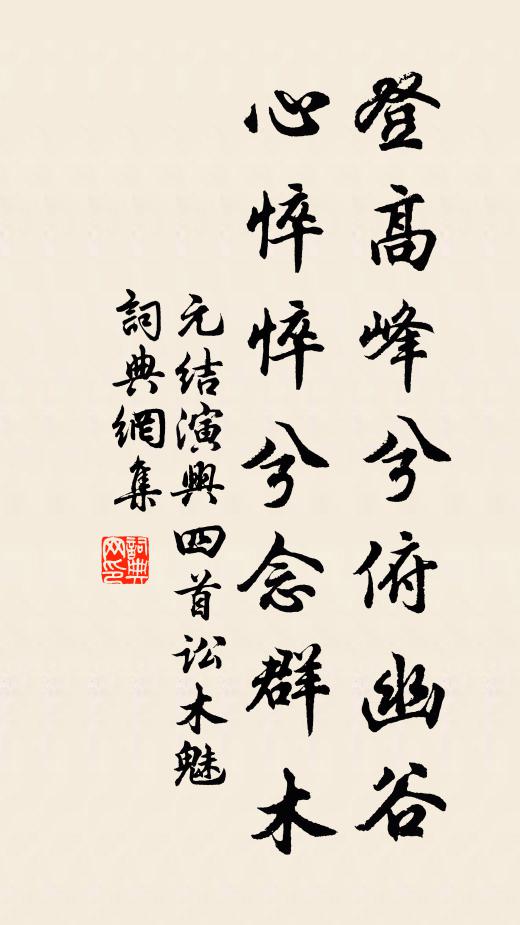 登高峰兮俯幽谷
心悴悴兮念群木
元结演興四首讼木魅
詞典網集
詞典网印